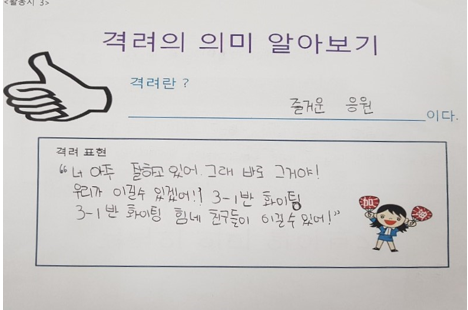 <활동지 3>
격려의 의미 알아보기
격려란?
즐거운 응원 이다.
격려 표현
"너 아주 잘하고 있어. 그래 바로 그거야!
우리가 이길수 있겠어!! 3-1반 화이팅
3-1반 화이팅 힘내 친구들이 이길수 있어!"